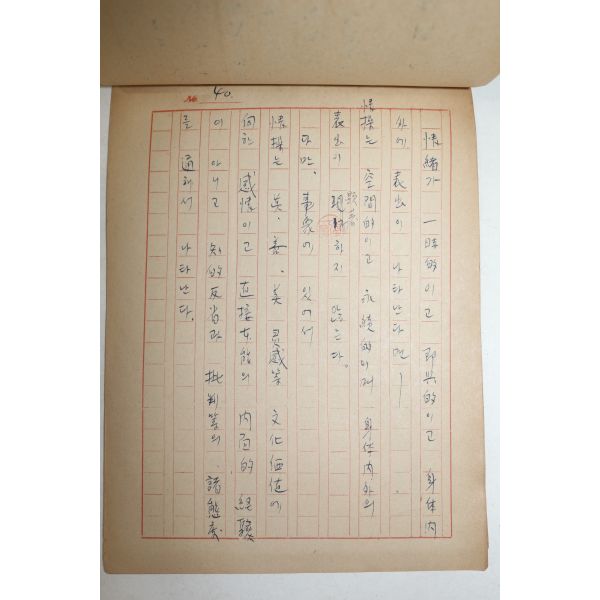 № 40.
情緖가 一時的이고 即興的이고 身体内
外에 表出이 나타난다면ㅡ
情操는 空間的이고 永続的이며 身体内外의
表出이 顕著하지 않는다.
다만, 事象에 있어서
情操는 眞、善、美 灵感等 文化価値에
向한 感情이고 直接本能의 内面的 経驗
이 아니고 知的反省과 批判等의 諸態度
를 通해서 나타난다.